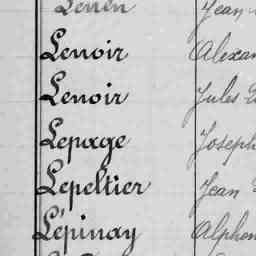 Lenoir Alexan
Lenoir Jules
Lepage Joseph
Lepeltier Jean
Lépinay Alphon